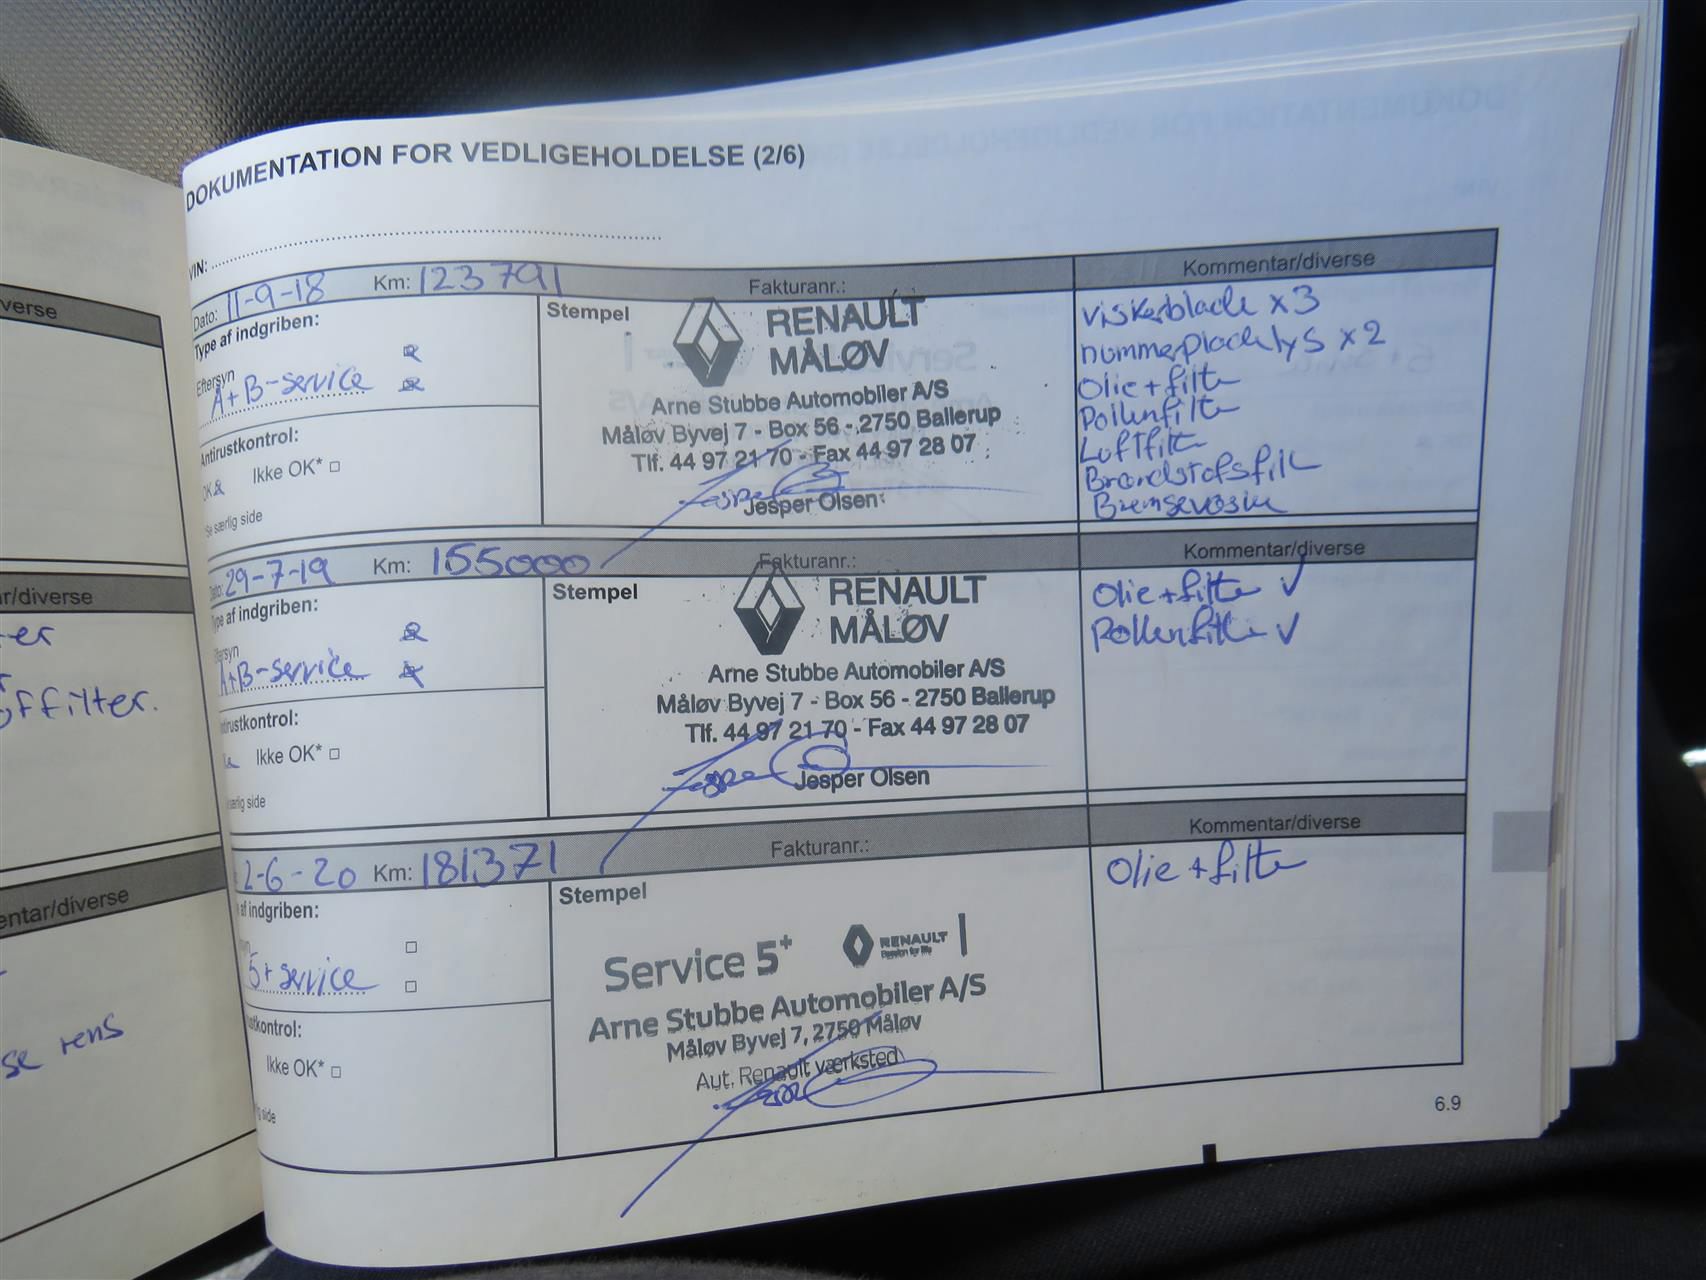 verse
r/diverse
er
offilter.
entar/diverse
se rens
DOKUMENTATION FOR VEDLIGEHOLDELSE (2/6)
VIN:
Dato: 11-9-18 Km: 123791 Fakturanr.: Kommentar/diverse
Type af indgriben:
Eftersyn
A+B-service
Antirustkontrol:
OK Ikke OK*
Se særlig side
Stempel
RENAULT
MÅLØV
Arne Stubbe Automobiler A/S
Måløv Byvej 7 - Box 56 - 2750 Ballerup
Tlf. 44 97 21 70 - Fax 44 97 28 07
Jesper Olsen
viskerblade x3
nummerpladelys x2
Olie + filter
Pollenfilter
Luftfilter
Brændstofsfilt
Bremsevæske
Dato: 29-7-19 Km: 155000 Fakturanr.: Kommentar/diverse
Type af indgriben:
Eftersyn
A+B-service
ntirustkontrol:
Ikke OK*
særlig side
Stempel
RENAULT
MÅLØV
Arne Stubbe Automobiler A/S
Måløv Byvej 7 - Box 56 - 2750 Ballerup
Tlf. 44 97 21 70 - Fax 44 97 28 07
Jesper Olsen
Olie + filter ✓
Pollenfilter ✓
2-6-20 Km: 181371 Fakturanr.: Kommentar/diverse
af indgriben:
syn
5+ service
ustkontrol:
Ikke OK*
lig side
Stempel
Service 5+ RENAULT
Passion for life
Arne Stubbe Automobiler A/S
Måløv Byvej 7, 2750 Måløv
Aut. Renault værksted
Olie + filter
6.9